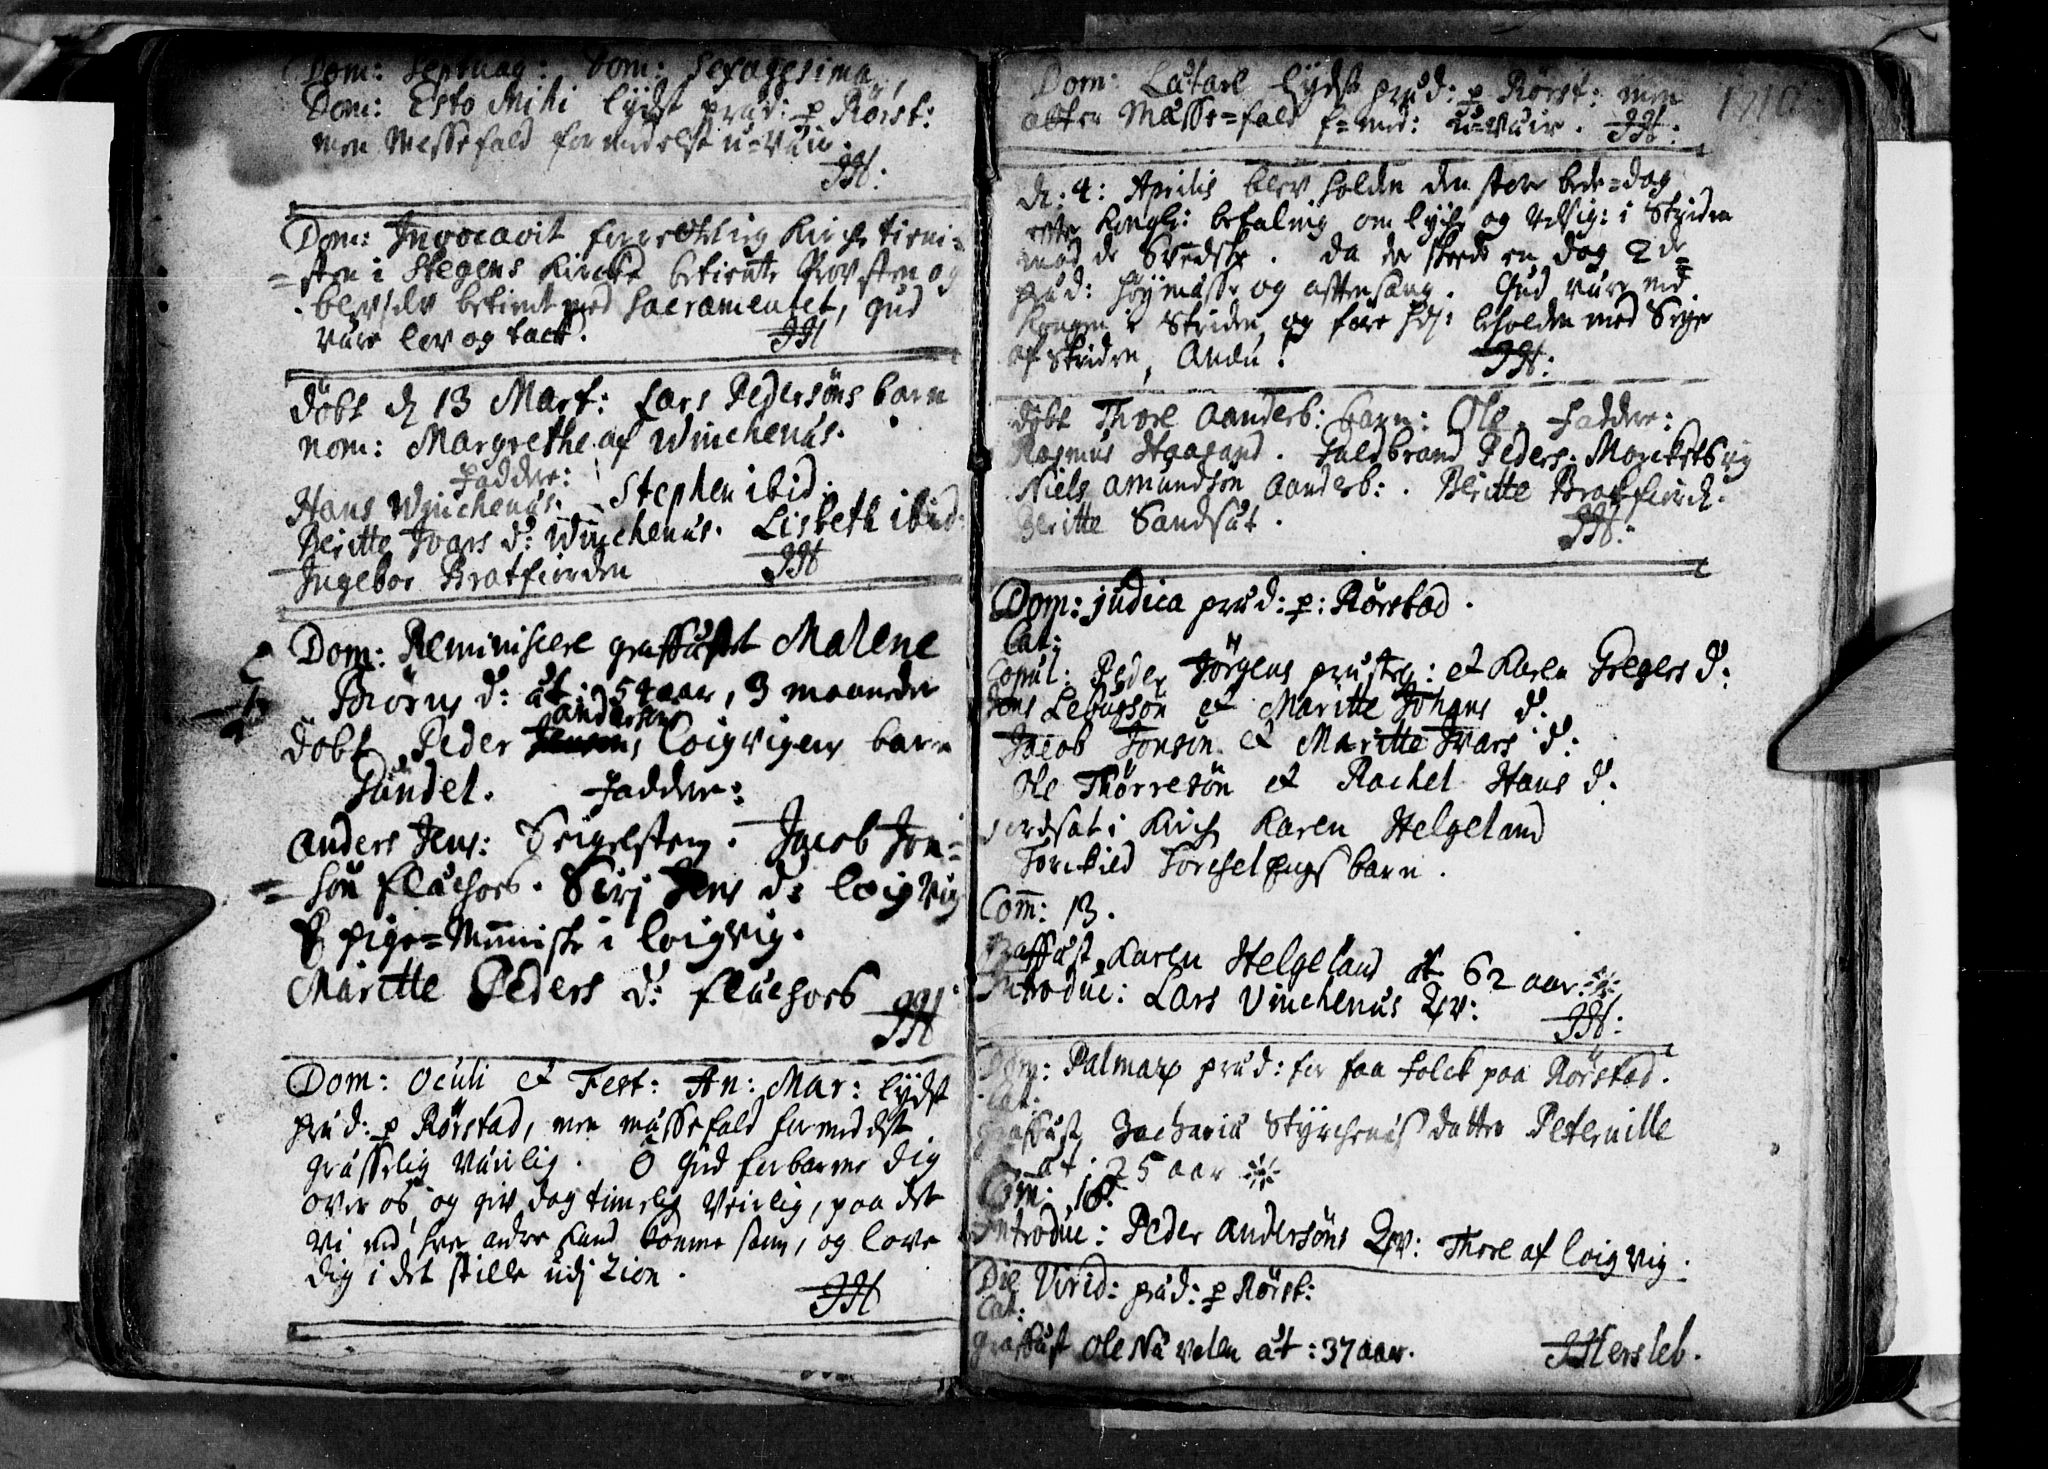 Dom: Septuag: Dom: Sexagesima,
Dom: Esto Mihi lydst præd: p Rörst:
men Messefald formedelst u=vair.
JH:
Dom: Invocavit forrettelig Kirche tieni=
=sten i Stegens Kircke betiente Provsten og
blev selv betient med Sacramentet, Gud
være lov og tack.
JH
döbt d 13 Mart: Lars Pedersöns barn
nom: Margrethe af Winchenes.
Faddere:
Hans Winchenes. Stephen ibid.
Beritte Ivars d: Winchenes. Lisbeth ibid:
Ingebor Bratfiorden
JH
Dom: Reminiscere graffæstet Malene
Biörns d: æt: 54 aar, 3 maaneder
Anderssöns
döbt Peder Loigvigen barn
Pændel. Faddere:
Anders Jens: Seigelsten. Jacob Jon=
=sön fleuchoes. Sirj Jens d: Loigvig
E pige=Menniske i Loigvig.
Maritte Peders d: fleuchoes
JH
Dom: Oculi et Fest: An: Mar: lydst
præd: p Rörstad, men messefald formedelst
græsselig vairlig. O Gud forbarme dig
over os, og giv dog timelig Veirlig, paa det
vi med hver andre kand komme sam, og love
dig i det stille udj Zion.
JH
1710
Dom: Lætare lydst præd: p Rörst: men
atter Mæsse=fald f=med: u=vair. JH:
d: 4: Aprilis blev holden den store bede=dag
efter Kongl: befaling om lycke og Velsig: i Striden
mod de Svedske. da der skeede en dag 2de
præd: höymæsse og afftensang. Gud være med
Kongen i Striden, og fare hos: beholden med Seyer
af Striden, Anden!
JH:
döbt Thore Aanderb: barn: Ole. Faddere:
Rasmus Staasand. Guldbrand Peders: Morcketbyg
Niels Amundsön Aanderb:. Beritte Bratfiord.
Beritte Sandsæt.
JH:
Dom: judica præd: p: Rörstad.
Cat:
Copul: Peder Jörgens : et Karen Gregers d:
Jens Lebugsön et Maritte Johans d.
Jacob Jonsön et Maritte Ivars d:
Ole Thörresön et Rachel Hans d.
Jordsat i Kirch Karen Helgeland
Torckild Torchelsens barn.
Com̄: 13.
Graffæst Karen Helgeland æt 62 aar
Introduc: Lars Vinchenes Qv:
JH:
Dom: Palmar præd: for faa folck paa Rörstad.
Cat:
Graffæst Zacharia Styrchenis datter Peternille
æt: 25 aar
Com̄: 18.
Introduc: Peder Andersöns Qv: Thore af Loigvig.
Die Virid: præd: p Rörst:
Cat:
graffæst Ole Nævelen æt: 37 aar. JHersleb.